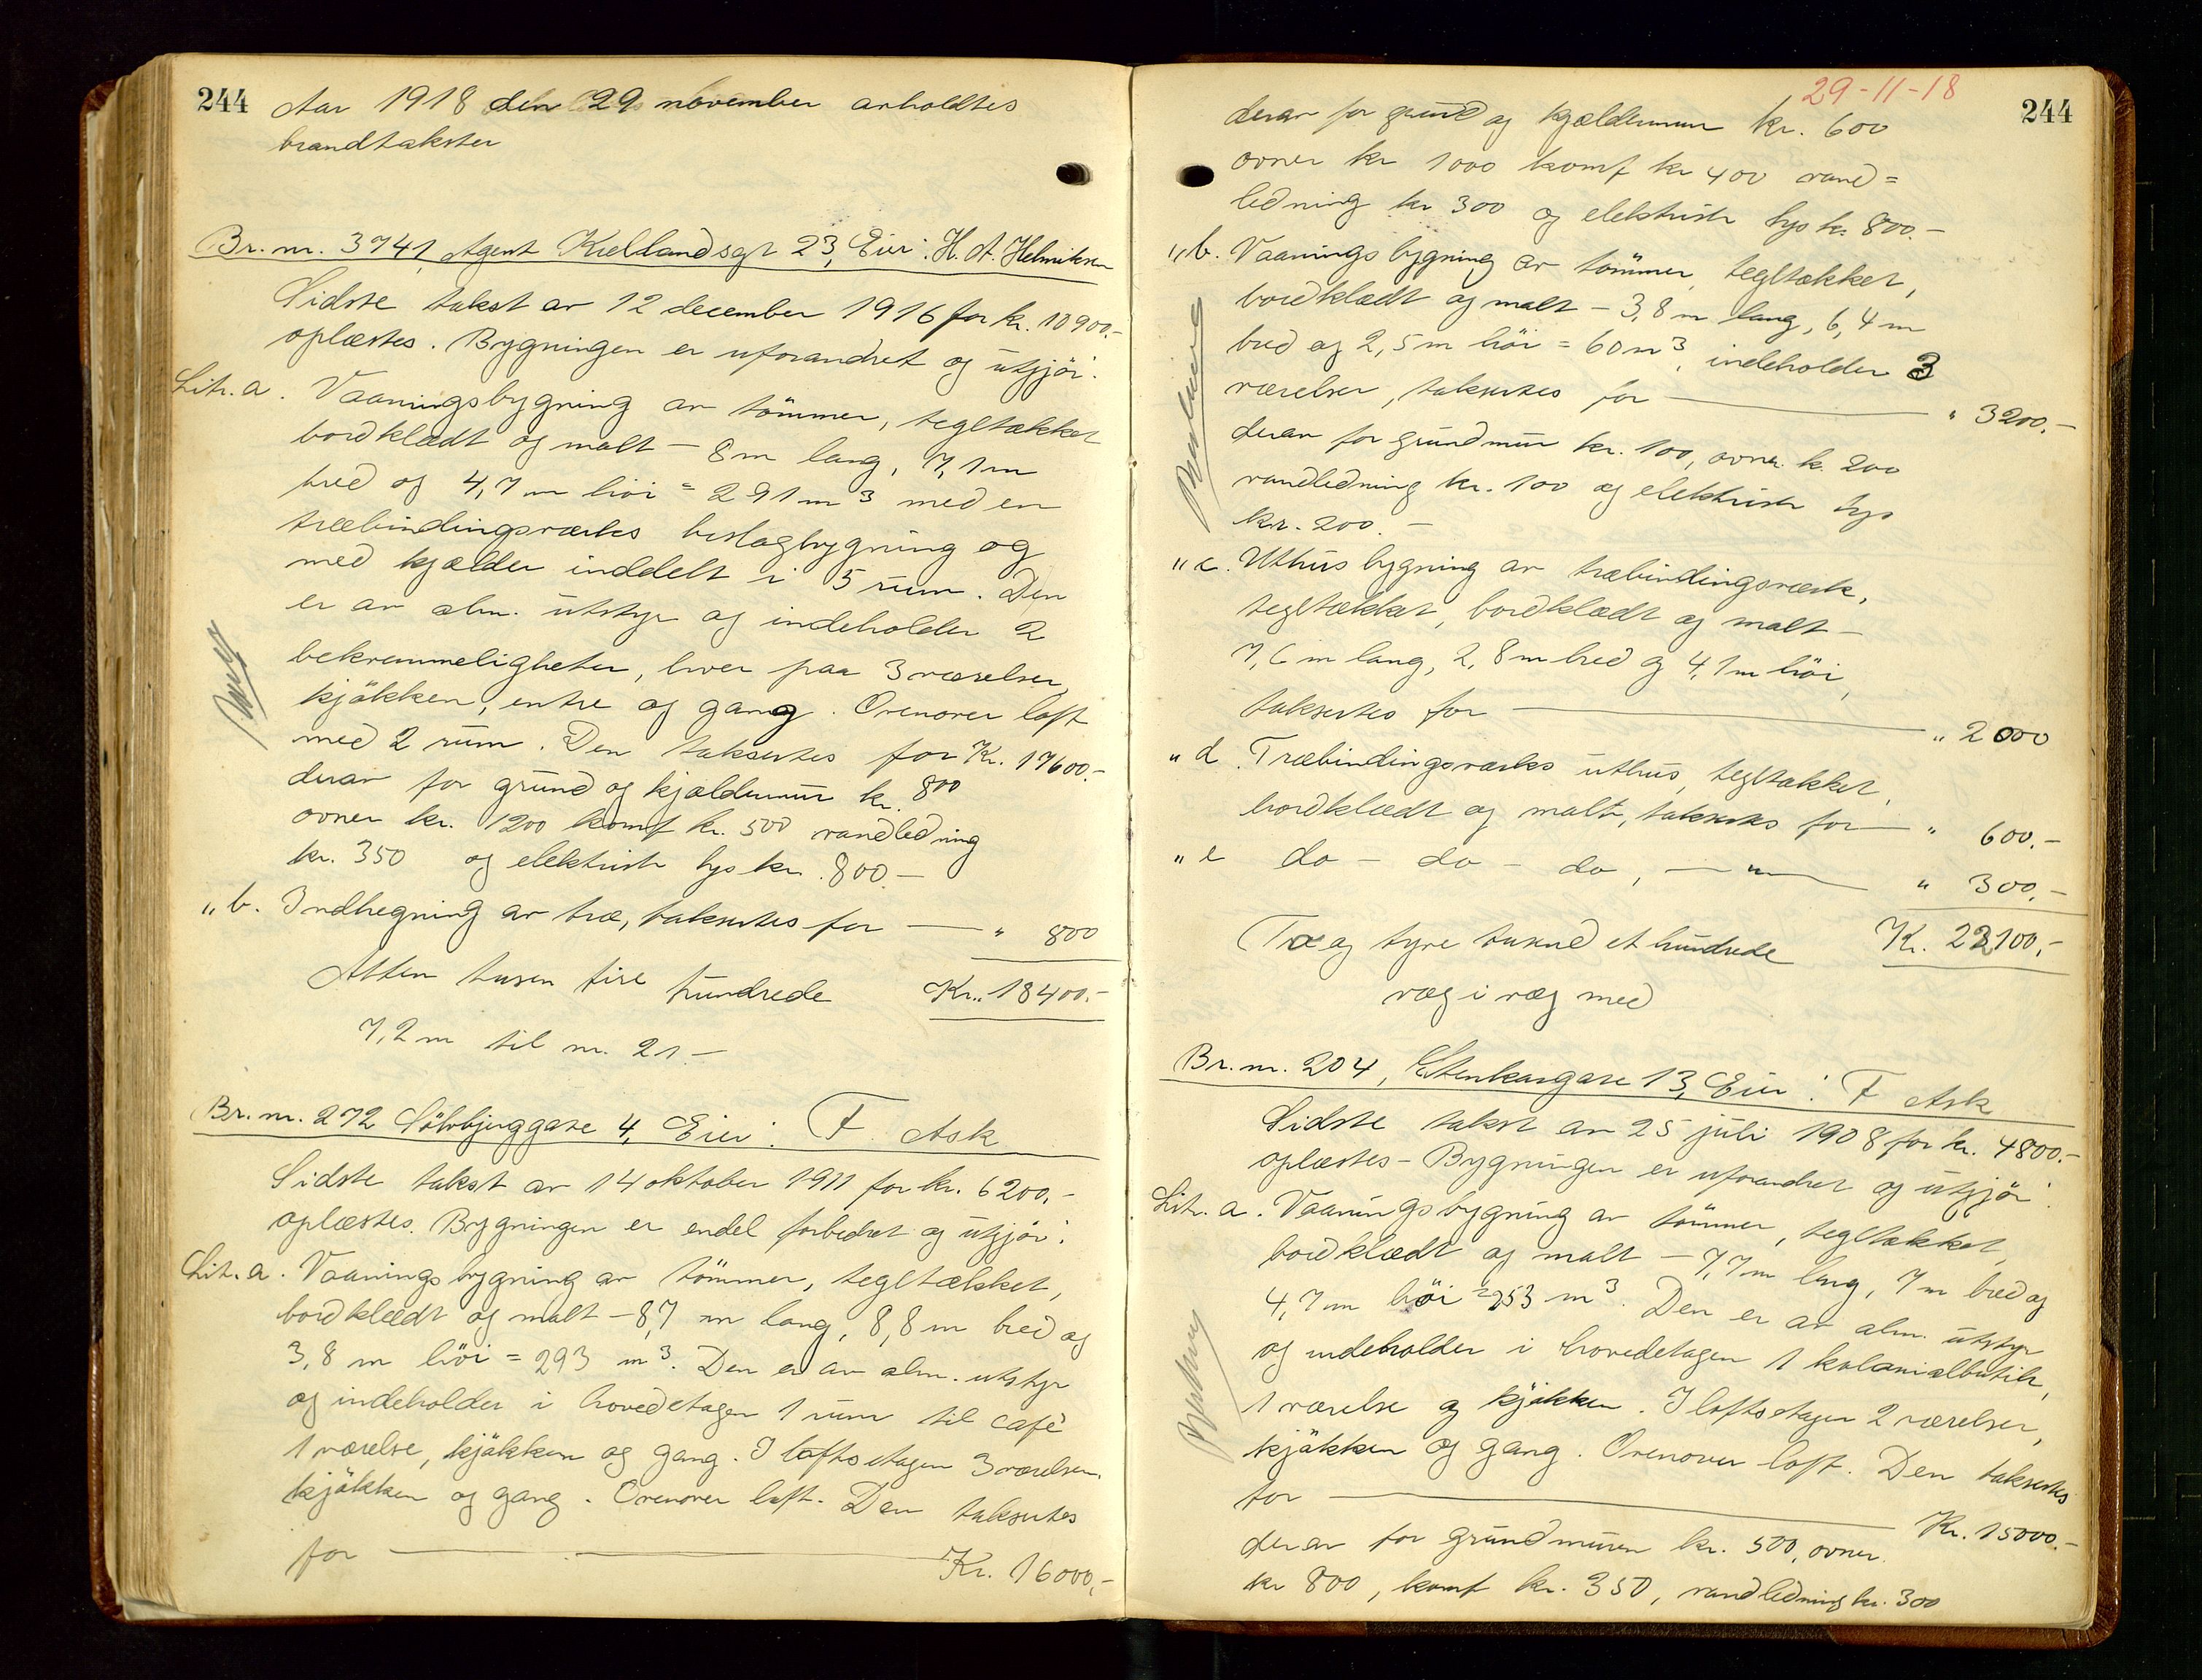 244
Aar 1918 den 29 november avholdtes
brandtakster
Br. nr. 3741, Agent Kiellandsgt 23, Eier: H. A. Helmiksen
Sidste takst av 12 december 1916 for kr. 10900.-
oplæstes. Bygningen er uforandret og utgjör:
Litr. a. Vaaningsbygning av tömmer, tegltækket
bordklædt og malt - 8 m lang, 7,1 m
bred og 4,7 m höi = 291 m3 med en
træbindingsværks beslagbygning og
med kjælder inddelt i 5 rum. Den
er av alm. utstyr og indeholder 2
bekvemmeligheter, hver paa 3 værelser,
kjökken, entre og gang. Ovenover loft
med 2 rum. Den taksertes for Kr. 17600.-
derav for grund og kjældermur kr. 800
ovner kr. 1200 komf kr. 500 vandledning
kr. 350 og elektrisk lys kr. 800.-
" b. Indhegning av træ, taksertes for — " 800
Atten tusen fire hundrede Kr. 18400.-
7,2 m til nr. 21 -
Br. nr. 272 Sölvbjerggate 4, Eier: F. Ask
Sidste takst av 14 oktober 1911 for kr. 6200.-
oplæstes. Bygningen er endel forbedret og utgjör:
Lit. a. Vaaningsbygning av tömmer, tegltækket,
bordklædt og malt - 8,7 m lang, 8,8 m bred og
3,8 m höi = 293 m3. Den er av alm. utstyr
og indeholder i hovedetagen 1 rum til café
1 værelse, kjökken og gang. I loftsetagen 3 værelser,
kjökken og gang. Ovenover loft. Den taksertes
for — Kr. 16000.-
29-11-18
244
derav for grund og kjældermur kr. 600
ovner kr 1000 komf kr 400 vand=
ledning kr 300 og elektrisk lys kr. 800.-
" b. Vaaningsbygning av tömmer, tegltækket,
bordklædt og malt - 3,8 m lang, 6,4 m
bred og 2,5 m höi = 60 m3, indeholder 3
værelser, taksertes for — " 3200.-
derav for grundmur kr. 100, ovner kr. 200
vandledning kr. 100 og elektrisk lys
kr. 200.-
" c. Uthusbygning av træbindingsværk,
tegltækket, bordklædt og malt -
7,6 m lang, 2,8 m bred og 4,1 m höi,
taksertes for — " 2000
" d. Træbindingsværks uthus, tegltækket,
bordklædt og malt, taksertes for — " 600.-
" e do - do - do, — " — " 300.-
To og tyve tusend et hundrede Kr. 22100.-
væg i væg med
Br. nr. 204, Stenkargate 13, Eier: F Ask
Sidste takst av 25 juli 1908 for kr. 4800.-
oplæstes - Bygningen er uforandret og utgjör:
Litr. a. Vaaningsbygning av tömmer, tegltækket,
bordklædt og malt - 7,7 m lang, 7 m bred og
4,7 m höi = 253 m3. Den er av alm. utstyr
og indeholder i hovedetagen 1 kolonialbutik,
1 værelse og kjökken. I loftsetagen 2 værelser,
kjökken og gang. Ovenover loft. Den taksertes
for — Kr. 15000.-
derav for grundmuren kr. 500, ovner
kr 800, komf kr. 350, vandledning kr. 300